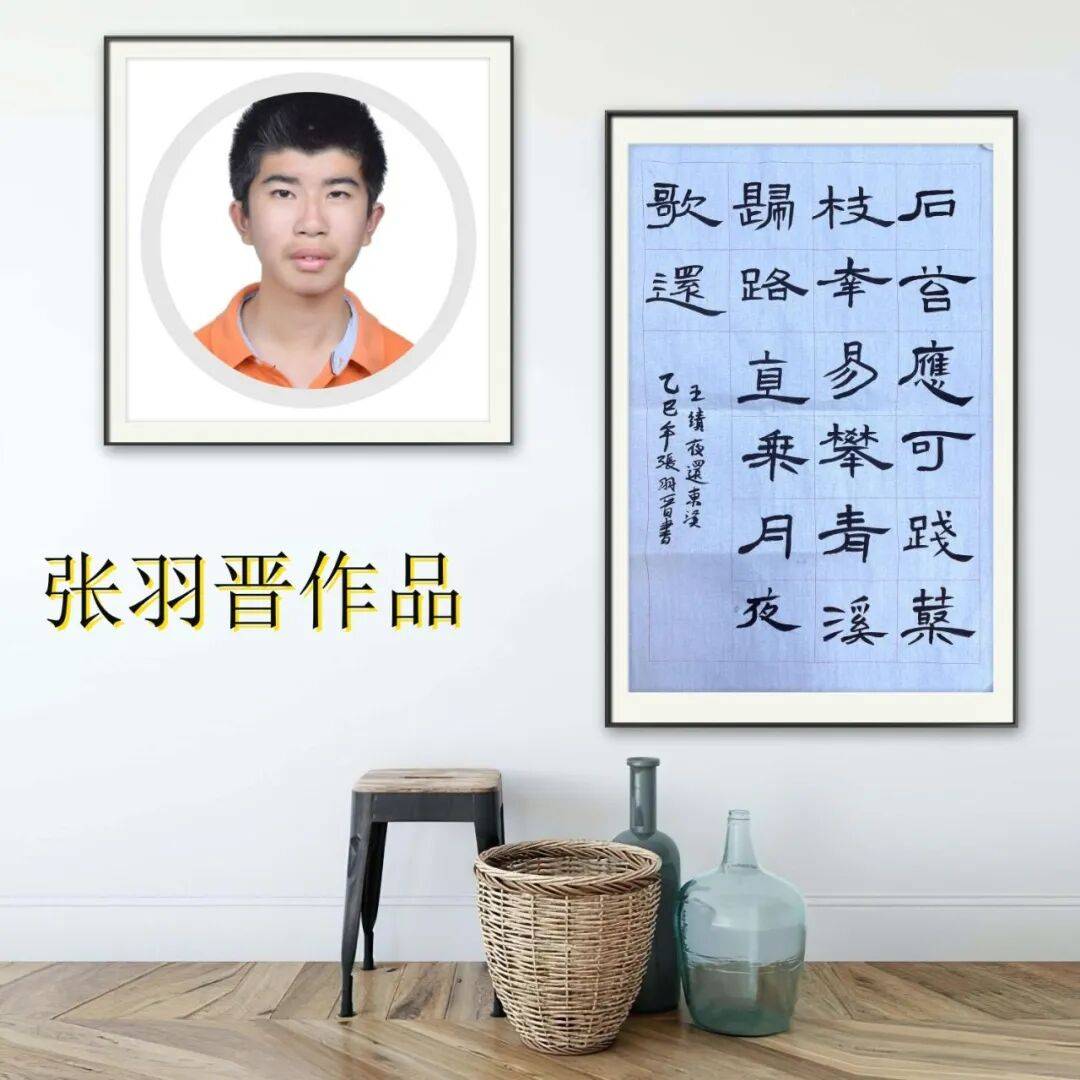 张羽晋作品
石苔應可踐藂
枝幸易攀青溪
歸路直乘月夜
歌還
王績夜還東溪
乙巳年張羽晉書